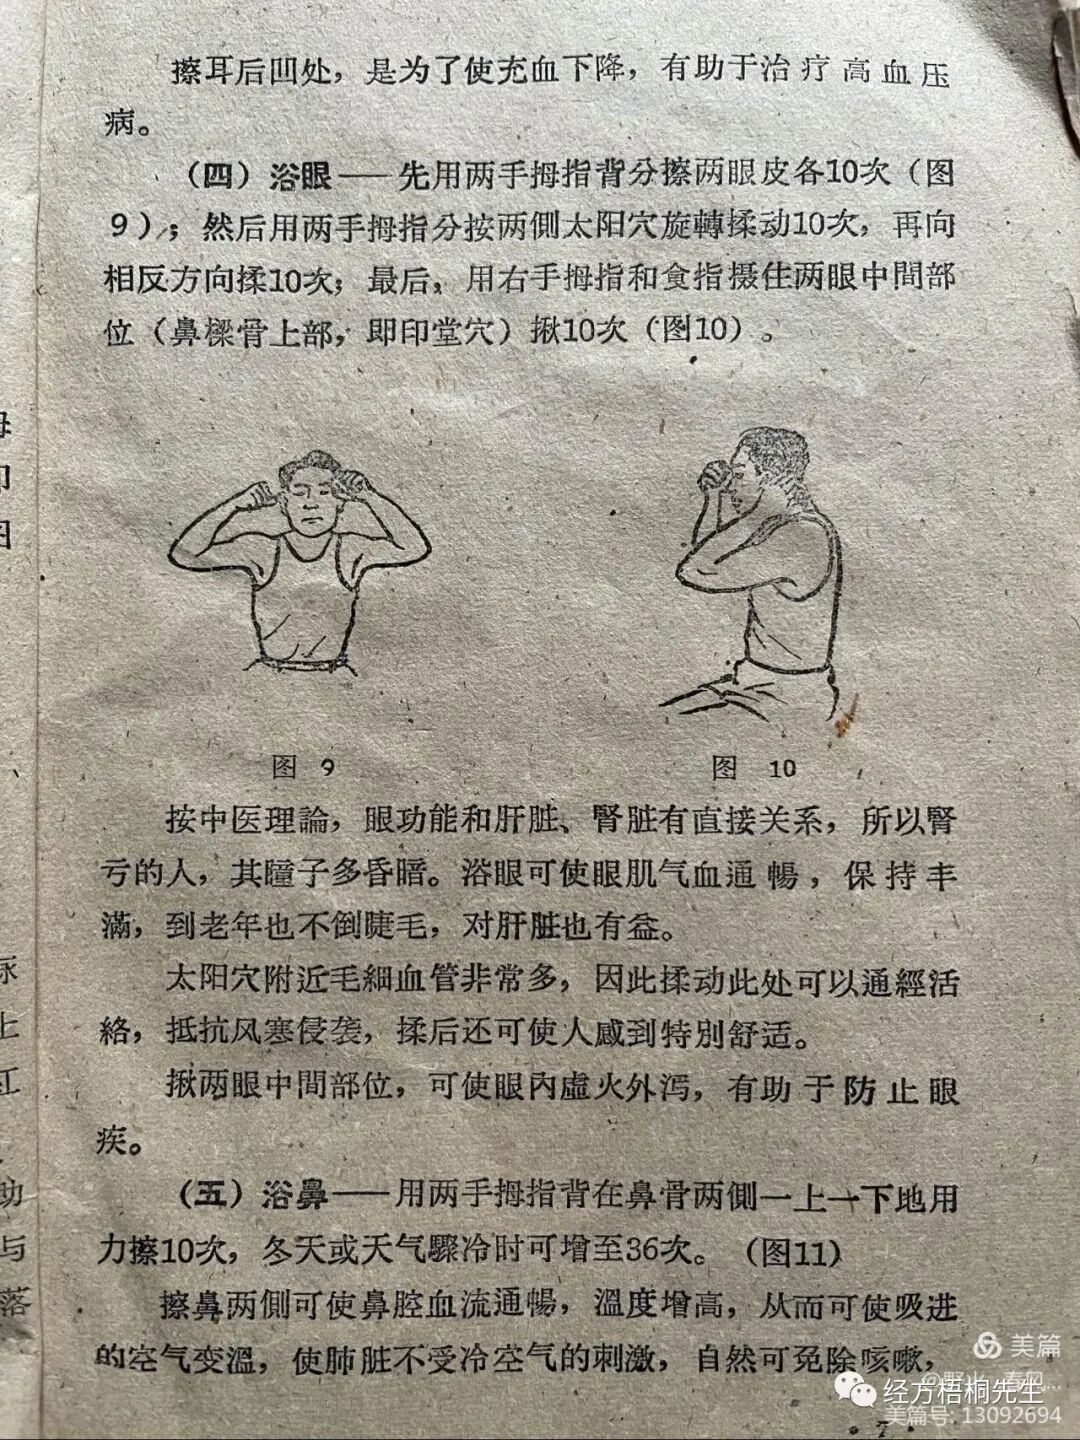 擦耳后凹处，是为了使充血下降，有助于治疗高血压
病。
（四）浴眼——先用两手拇指背分擦两眼皮各10次（图
9）；然后用两手拇指分按两側太阳穴旋轉揉动10次，再向
相反方向揉10次；最后，用右手拇指和食指摄住两眼中間部
位（鼻樑骨上部，即印堂穴）揪10次（图10）。
图 9
图 10
按中医理論，眼功能和肝脏、腎脏有直接关系，所以腎
亏的人，其瞳子多昏暗。浴眼可使眼肌气血通暢，保持丰
滿，到老年也不倒睫毛，对肝脏也有益。
太阳穴附近毛細血管非常多，因此揉动此处可以通經活
絡，抵抗风寒侵袭，揉后还可使人感到特別舒适。
揪两眼中間部位，可使眼內虛火外泻，有助于防止眼
疾。
（五）浴鼻——用两手拇指背在鼻骨两側一上一下地用
力擦10次，冬天或天气驟冷时可增至36次。（图11）
擦鼻两側可使鼻腔血流通暢，溫度增高，从而可使吸进
的空气变溫，使肺脏不受冷空气的刺激，自然可免除咳嗽，
· 7 ·
母
印
图
尿
上
红
助
与
落
美篇
经方梧桐先生
美篇号: 13092694